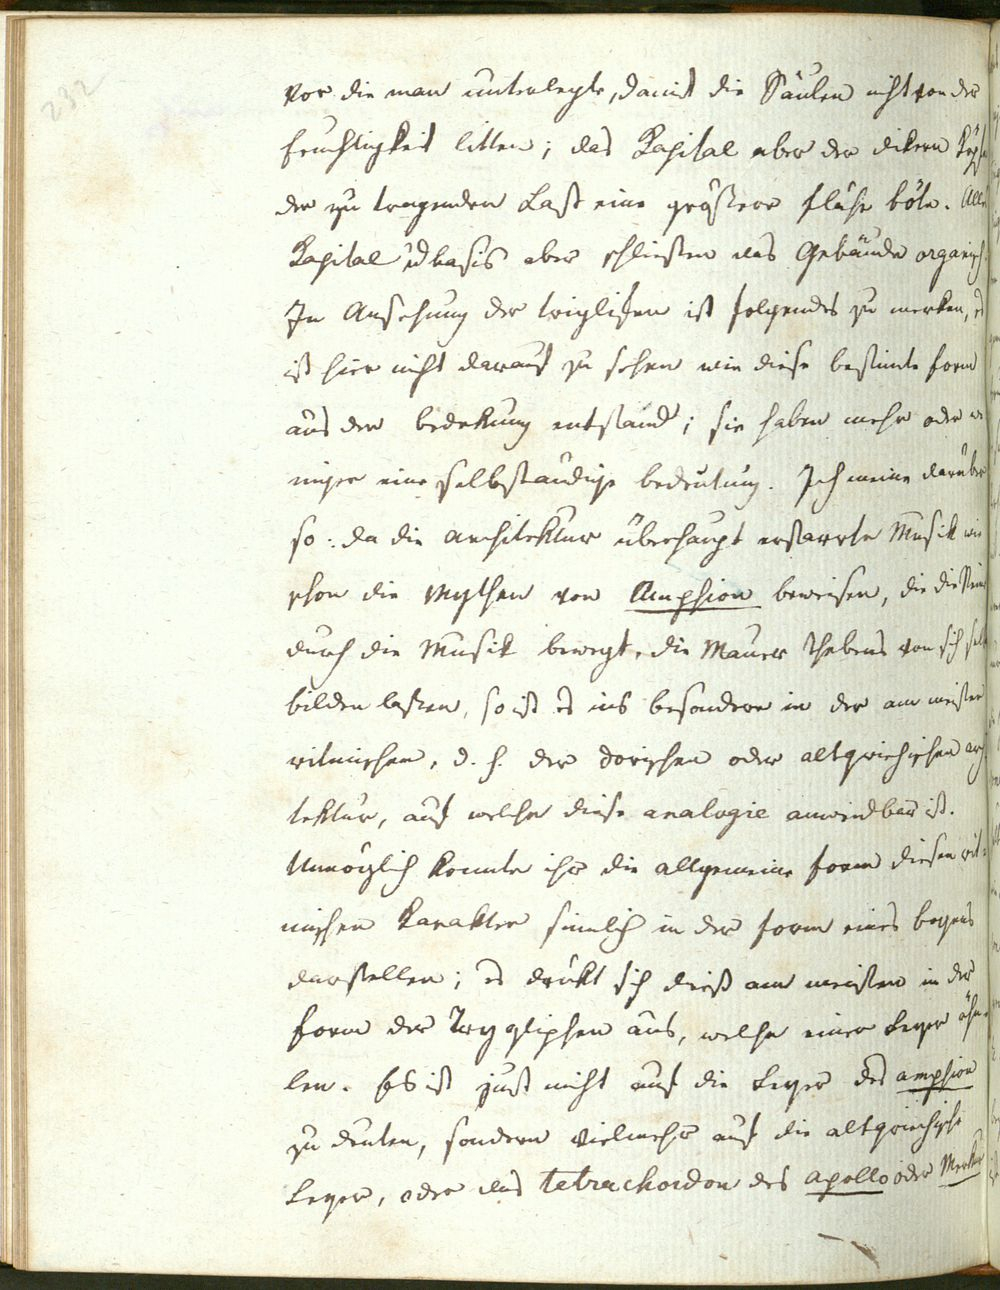 232
vor die man unterlegte, damit die Säulen nicht von der
feuchtigkeit litten; das Kapital aber der dikern
der zu tragenden Last eine größere fläche böte. Alle
Kapital u basis aber schließen das Gebäude organisch.
In Ansehung der triglifen ist folgendes zu merken, es
ist hier nicht darauf zu sehen wie diese bestimte form
aus der bedekung entstand; sie haben mehr oder we
niger eine selbständige bedeutung. Ich meine darüber
so: da die architektur überhaupt erstarrte Musik wie
schon die Mythen von Amphion beweisen, die die Steine
durch die Musik bewegt, die Mauer Thebens von sich selb
bilden laßen, so ist es ins besondere in der am meisten
ritmischen, d. h. der dorischen oder altgriechischen arch
tektur, auf welche diese analogie anwendbar ist.
Unmöglich konnte ihr die allgemeine form diesen rit-
mischen Karakter sinnlich in der form eines bogens
darstellen; es drükt sich dieß am meisten in der
form der Tryglyphen aus, welche einer Leyer ähn-
len. Es ist just nicht auf die Leyer des amphion
zu deuten, sondern vielmehr auf die altgriechische
Leyer, oder das tetrachordon des apollo oder Merkur